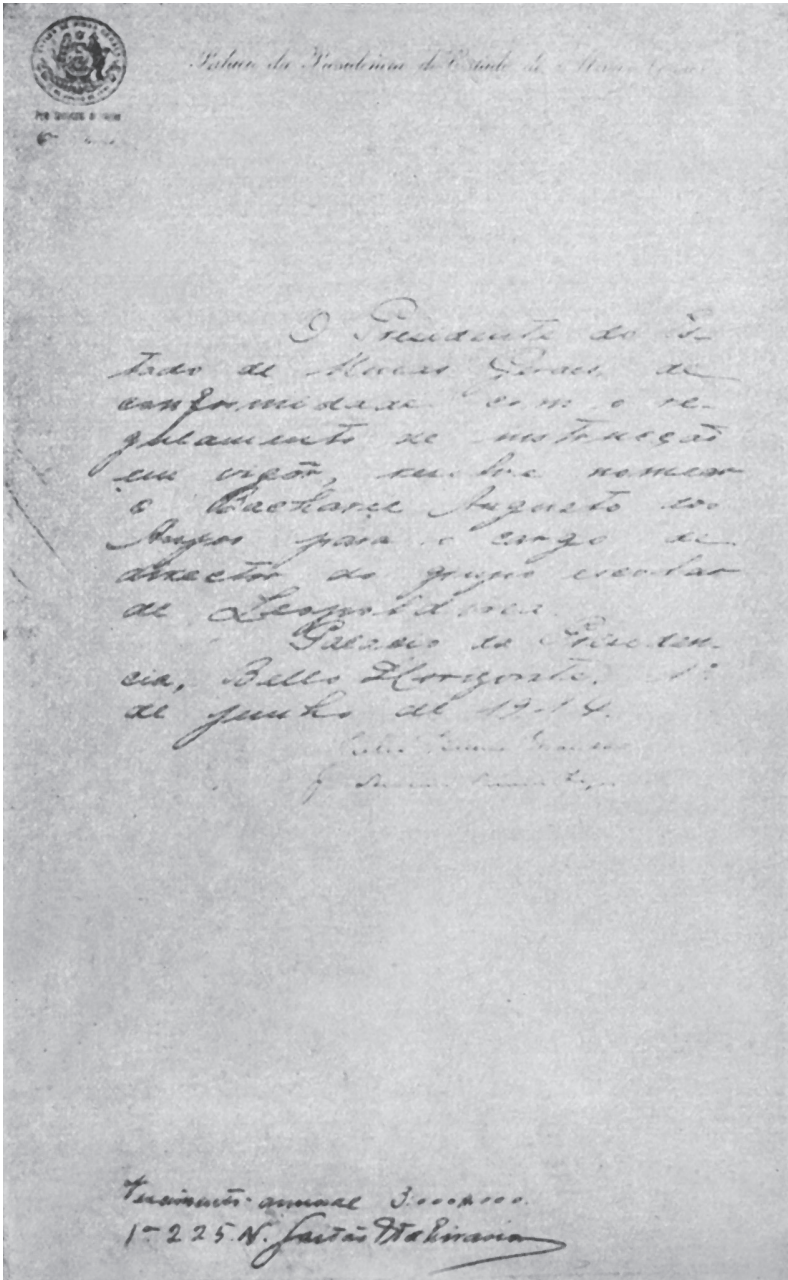 ESTADO DE MINAS GERAES
Palacio da Presidencia do Estado de Minas Geraes
O Presidente do Es-
tado de Minas Geraes, de
conformidade com o re-
gulamento de instrucção
em vigôr, resolve nomear
o Bacharel Augusto dos
Anjos para o cargo de
director do grupo escolar
de Leopoldina.
Palacio da Presiden-
cia, Bello Horizonte, 1º
de junho de 1914.
Vencimento annual 3.000$000.
1ª 225 N.